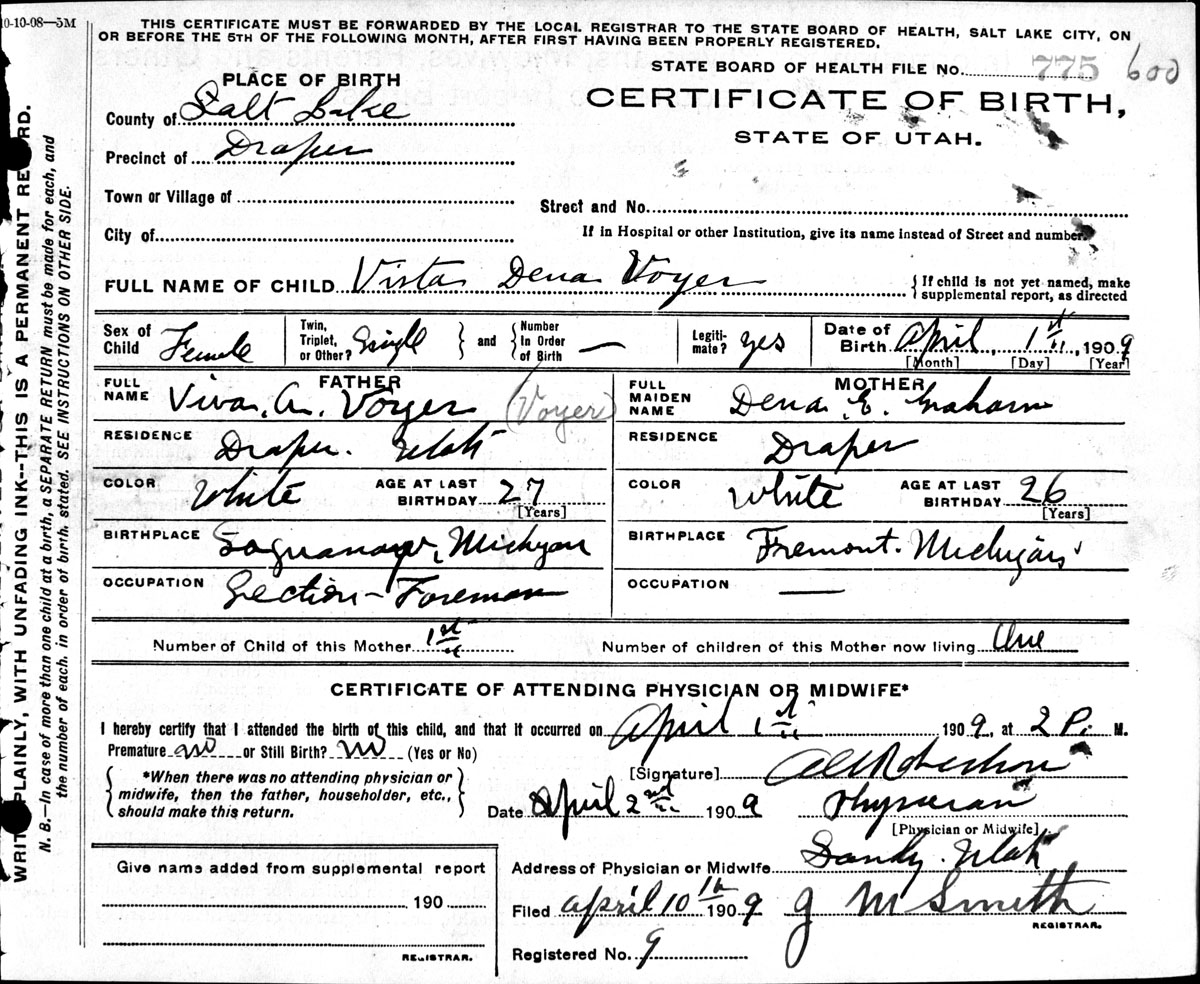 10-10-08—5M
THIS CERTIFICATE MUST BE FORWARDED BY THE LOCAL REGISTRAR TO THE STATE BOARD OF HEALTH, SALT LAKE CITY, ON
OR BEFORE THE 5TH OF THE FOLLOWING MONTH, AFTER FIRST HAVING BEEN PROPERLY REGISTERED.
STATE BOARD OF HEALTH FILE No. 775 600
PLACE OF BIRTH
CERTIFICATE OF BIRTH,
STATE OF UTAH.
County of Salt Lake
Precinct of Draper
Town or Village of
Street and No.
City of
If in Hospital or other Institution, give its name instead of Street and number.
FULL NAME OF CHILD Vista Dena Voyer
{If child is not yet named, make
supplemental report, as directed
Sex of Child Female
Twin, Triplet, or Other? Single } and { Number In Order of Birth —
Legiti-mate? yes
Date of Birth April, 1st, 1909
[Month] [Day] [Year]
FATHER
FULL NAME Viva. A. Voyer (Voyer)
MOTHER
FULL MAIDEN NAME Dena E. Graham
RESIDENCE Draper. Utah
RESIDENCE Draper
COLOR White AGE AT LAST BIRTHDAY 27 [Years]
COLOR White AGE AT LAST BIRTHDAY 26 [Years]
BIRTHPLACE Michigan
BIRTHPLACE Fremont. Michigan
OCCUPATION Section-Foreman
OCCUPATION —
Number of Child of this Mother 1st
Number of children of this Mother now living One
CERTIFICATE OF ATTENDING PHYSICIAN OR MIDWIFE*
I hereby certify that I attended the birth of this child, and that it occurred on April 1st 1909, at 2 P. M.
Premature no or Still Birth? no (Yes or No)
{ *When there was no attending physician or
midwife, then the father, householder, etc.,
should make this return. }
[Signature] Robertson
Date April 2nd 1909 Physician
[Physician or Midwife]
Address of Physician or Midwife Sandy. Utah
Filed April 10th 1909 J M Smith
REGISTRAR.
Registered No. 9
Give name added from supplemental report
190
REGISTRAR.
WRITE PLAINLY, WITH UNFADING INK--THIS IS A PERMANENT RECORD.
N. B.—In case of more than one child at a birth, a SEPARATE RETURN must be made for each, and
the number of each, in order of birth, stated. SEE INSTRUCTIONS ON OTHER SIDE.